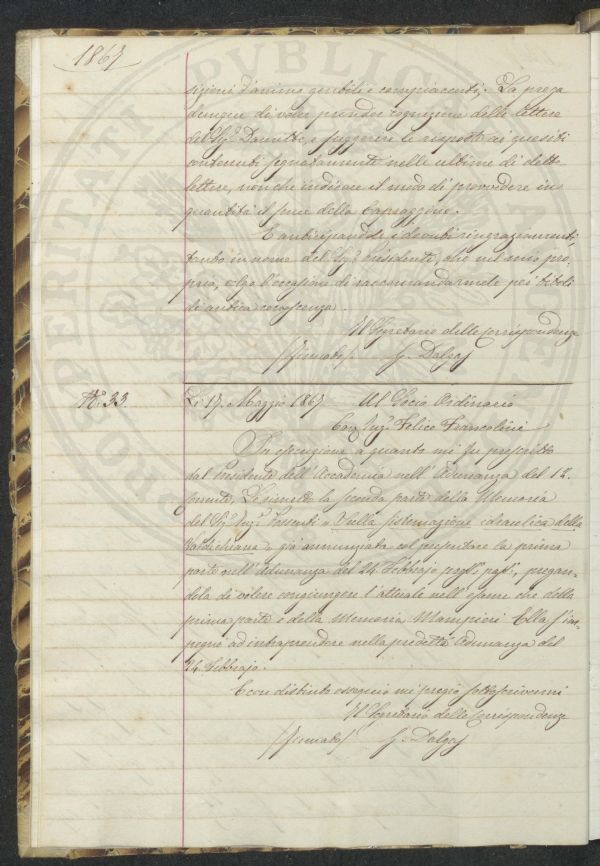 1867
sizioni d'animo gentili e compiacenti. La prega
dunque di voler prender cognizione delle lettere
del Sig.r e suggerire le risposte ai quesiti
contenuti segnatamente nelle ultime di dette
lettere, non che indicare il modo di provvedere in
quantità il seme della
E anticipandole i dovuti ringraziamenti,
tanto in nome del Sig.r Presidente, che nel mio pro
prio, colgo l'occasione di raccomandarmele pei titoli
di antica conoscenza.
Il Segretario delle corrispondenze
/firmato/ G. Dalgas
N.o 33. Li 17. Maggio 1867 Al Socio Ordinario
Cav. Ing.r Felice Francolini
In esecuzione a quanto mi fu prescritto
dal Presidente dell'Accademia nell'Adunanza del 12.
corrente, Le rimetto la seconda parte della Memoria
del Sig.r Ing.r Possenti " Sulla sistemazione idraulica della
Valdichiana " già annunziata col presentare la prima
parte nell'Adunanza del 24 Febbrajo pregan=
dola di volere congiungere l'attuale nell'esame che della
prima parte e della Memoria Manzieri Ella s'im=
pegnò ad intraprendere nella predetta Adunanza del
24. Febbrajo.
Con distinto ossequio mi pregio sottoscrivermi
Il Segretario delle Corrispondenze
/firmato/ G. Dalgas
PROSPERITATI PUBLICAE AUCTAE